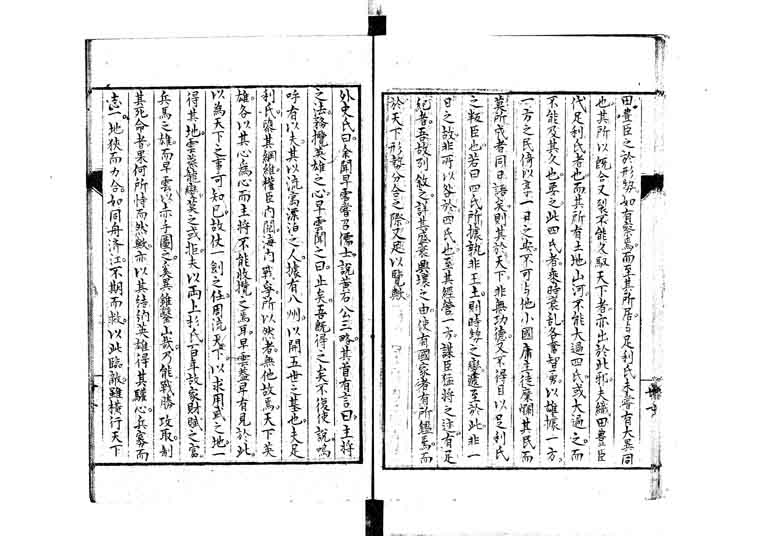 田豊臣之於形勢如有察焉而至其所居与足利氏未嘗有大異同
也其所以既合又裂不能久馭天下者亦出於此邪夫織田豊臣
代足利氏者也而其所有土地山河不能大過四氏或大過之而
不能及其久也要之此四氏者乗時衰乱各奮智勇以雄據一方
一方之民倚以享一日之安不可与他小國庸主徒糜爛其民而
莫所成者同日語矣則其於天下非無功徳又不得目以足利氏
之叛臣也若曰四氏所據孰非王土則時勢之變遷至於此非一
日之故非可以咎於四氏也至其經營一方謀臣猛将之迹有足
紀者吾故列敘之詳其盛衰興壊之由使有國家者有所鑑焉而
於天下形勢分合之際又足以覧歟
外史氏曰余聞早雲嘗召儒士説黄石公三略其首有言曰主将
之法務攬英雄之心早雲聞之曰止矣吾既得之矣不復使説嗚
呼有以夫其以流寓漂泊之人據有八州以開五世之基也夫足
利氏隳其綱維權臣内鬩海内戦争所以然者無他故焉天下英
雄各以其心為心而主将不能收攬之焉耳早雲蓋早有見於此
以為天下之事可知已故仗一劍之任周流天下以求用武之地一
得其地雲蒸龍變莫之或拒夫以両上杉氏百年故家財賦之富
兵馬之雄而早雲以赤手圖之奚異錐鑿山哉乃能戦勝攻取制
其死命者果何所恃而然歟亦以其結納英雄得其驩心兵寡而
志一地狭而力合如同舟済江不期而救以此臨敵雖横行天下